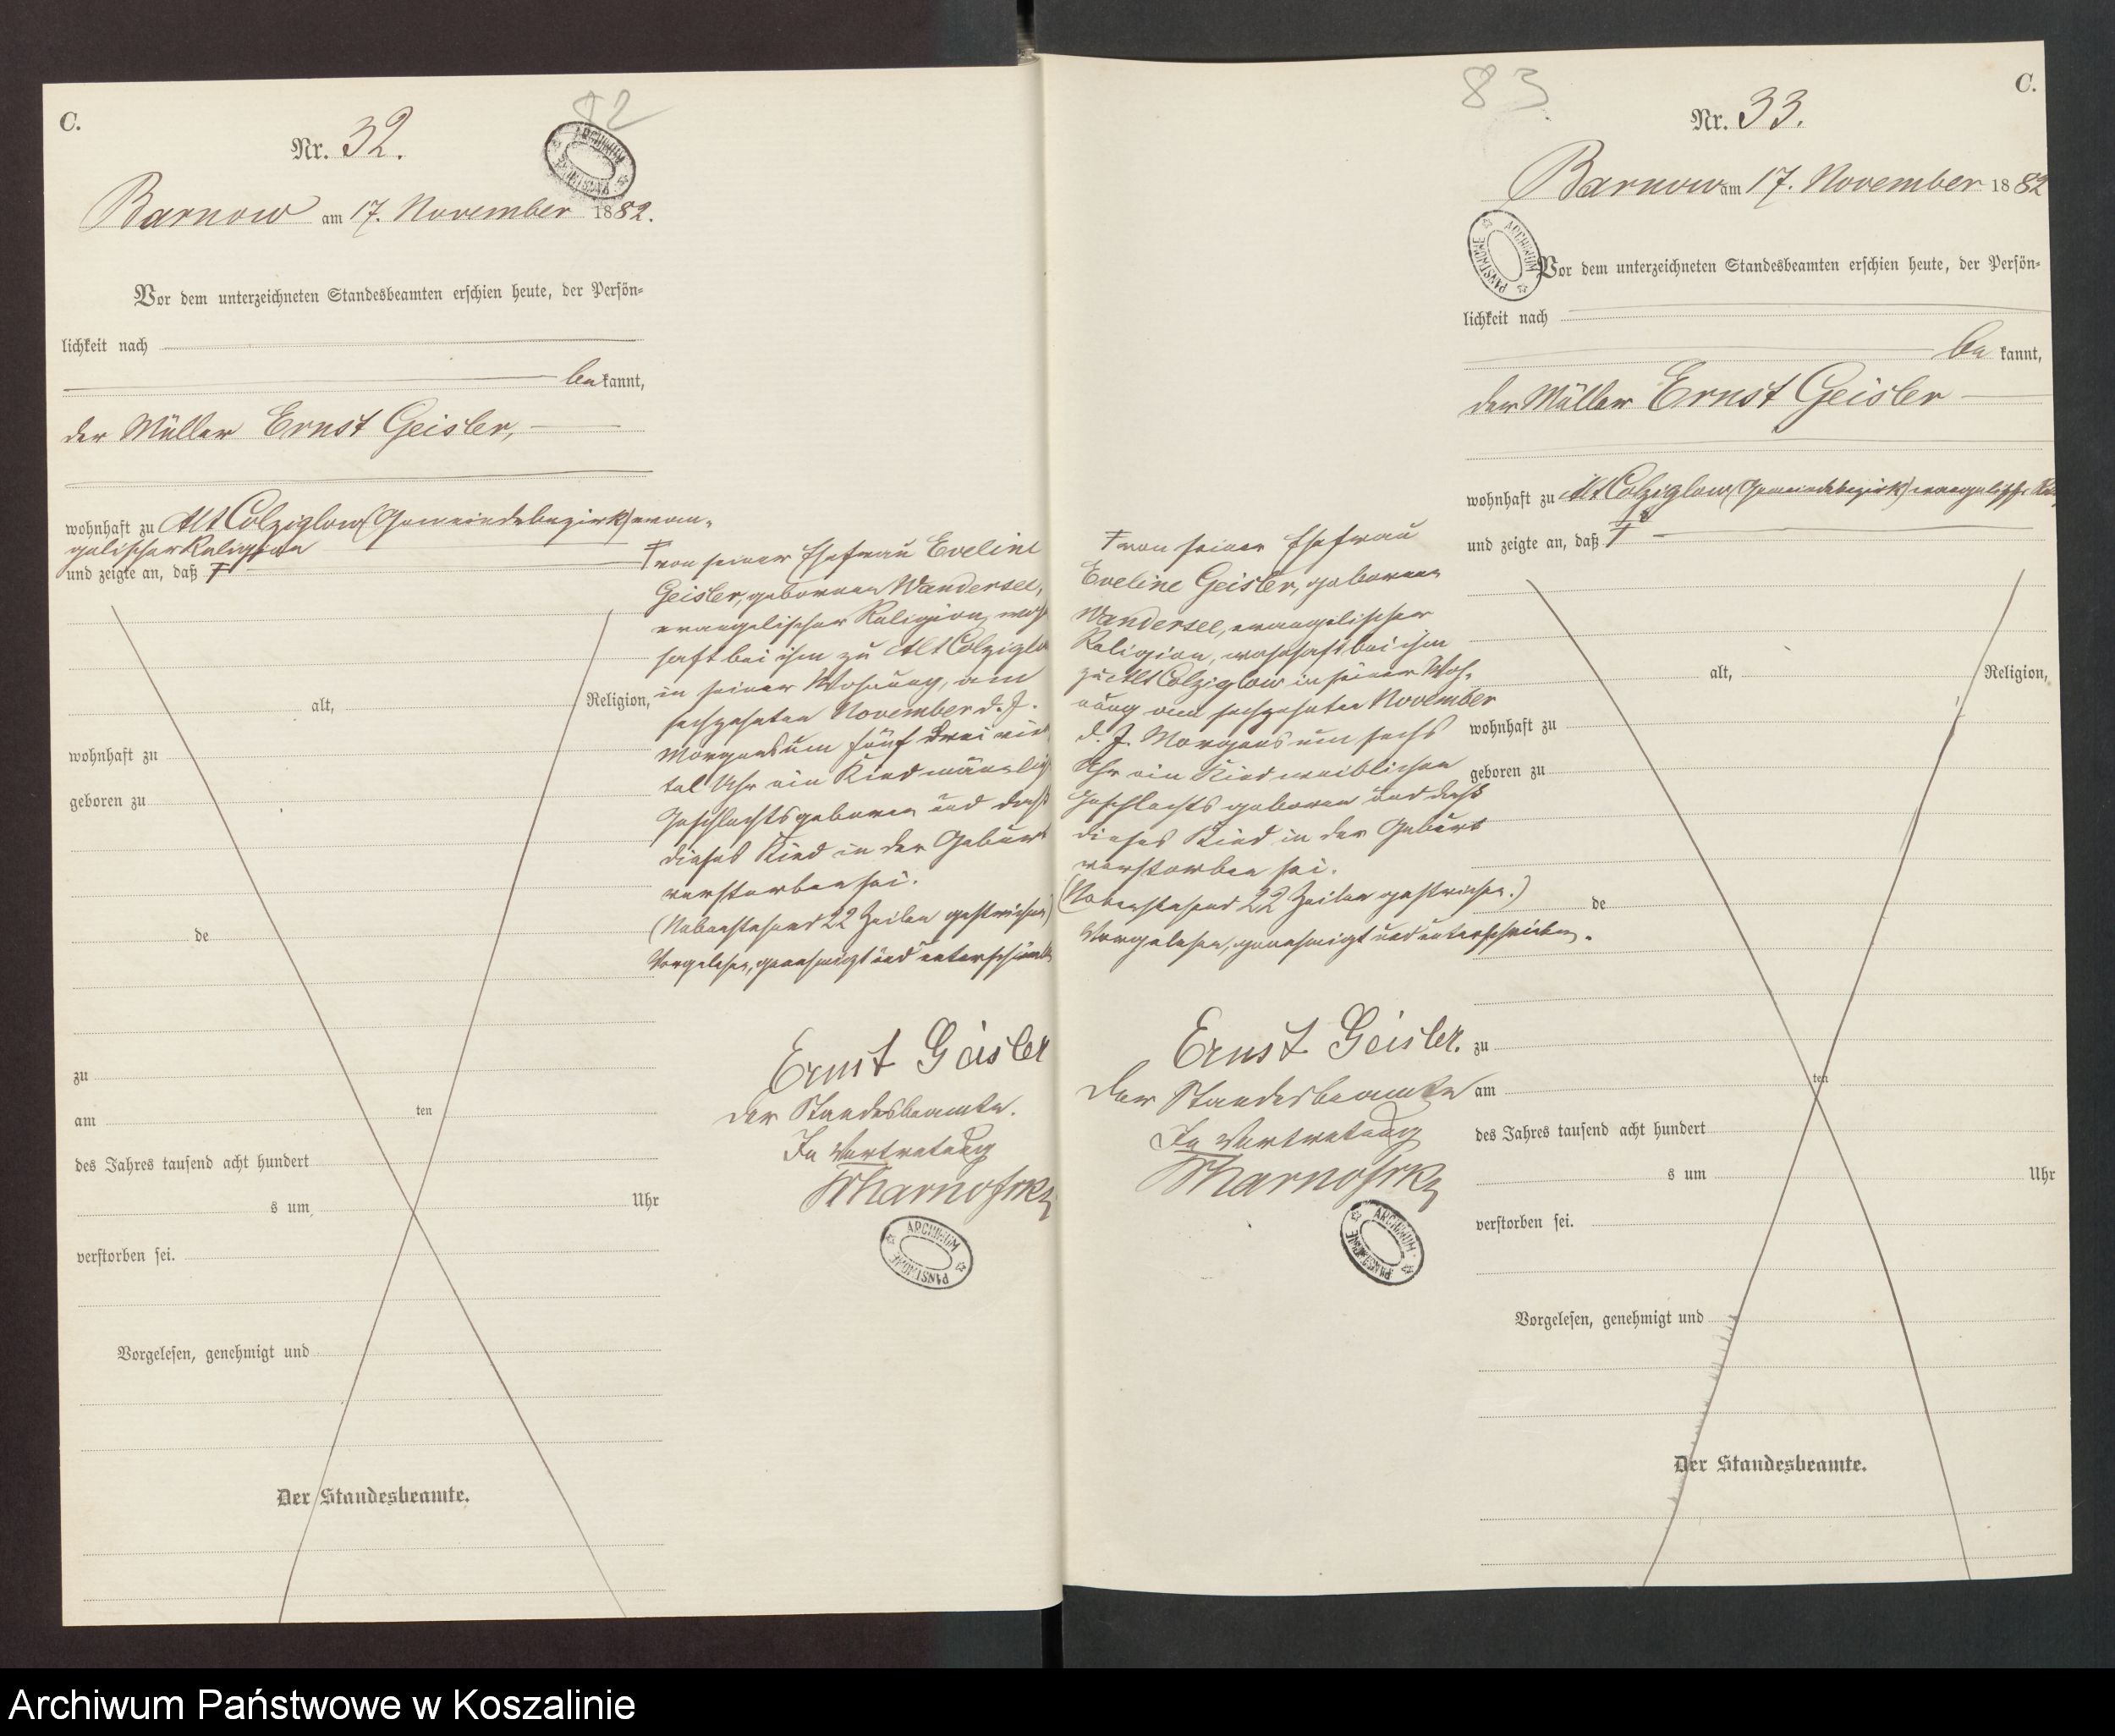 C.
82
Nr. 32.
ARCHIWUM PAŃSTWOWE
Barnow am 17. November 1882.
Vor dem unterzeichneten Standesbeamten erschien heute, der Persön-
lichkeit nach
bekannt,
der Müller Ernst Geisler,
wohnhaft zu Alt Colziglow (Gemeindebezirk) evan-
gelischer Religion
und zeigte an, daß
alt, Religion,
wohnhaft zu
geboren zu
de
zu
am ten
des Jahres tausend acht hundert
s um Uhr
verstorben sei.
Vorgelesen, genehmigt und
Der Standesbeamte.
von seiner Ehefrau Eveline
Geisler, geborenen Wandersee,
evangelischer Religion, wohn
haft bei ihm zu Alt Colziglo
in seiner Wohnung, am
sechzehnten November d. J.
Morgens um fünf drei vier
tel Uhr ein Kind männlich
Geschlechts geboren und daß
dieses Kind in der Geburt
verstorben sei.
(Nebenstehend 22 Zeilen gestrichen)
Vorgelesen, genehmigt und unterschrieb
Ernst Geisler
Der Standesbeamte.
In Vertretung
ARCHIWUM PAŃSTWOWE
83
C.
Nr. 33.
Barnow am 17. November 1882
ARCHIWUM PAŃSTWOWE
Vor dem unterzeichneten Standesbeamten erschien heute, der Persön-
lichkeit nach
bekannt,
der Müller Ernst Geisler
wohnhaft zu Alt Colziglow (Gemeindebezirk) evangelischer Rel
und zeigte an, daß
alt, Religion,
wohnhaft zu
geboren zu
de
zu
am ten
des Jahres tausend acht hundert
s um Uhr
verstorben sei.
Vorgelesen, genehmigt und
Der Standesbeamte.
von seiner Ehefrau
Eveline Geisler, geborenen
Wandersee, evangelischer
Religion, wohnhaft bei ihm
zu Alt Colziglow in seiner Woh-
nung am sechzehnten November
d. J. Morgens um sechs
Uhr ein Kind weiblichen
Geschlechts geboren und daß
dieses Kind in der Geburt
verstorben sei.
(Nebenstehend 22 Zeilen gestrichen.)
Vorgelesen, genehmigt und unterschrieben.
Ernst Geisler.
Der Standesbeamte
In Vertretung
ARCHIWUM PAŃSTWOWE
Archiwum Państwowe w Koszalinie